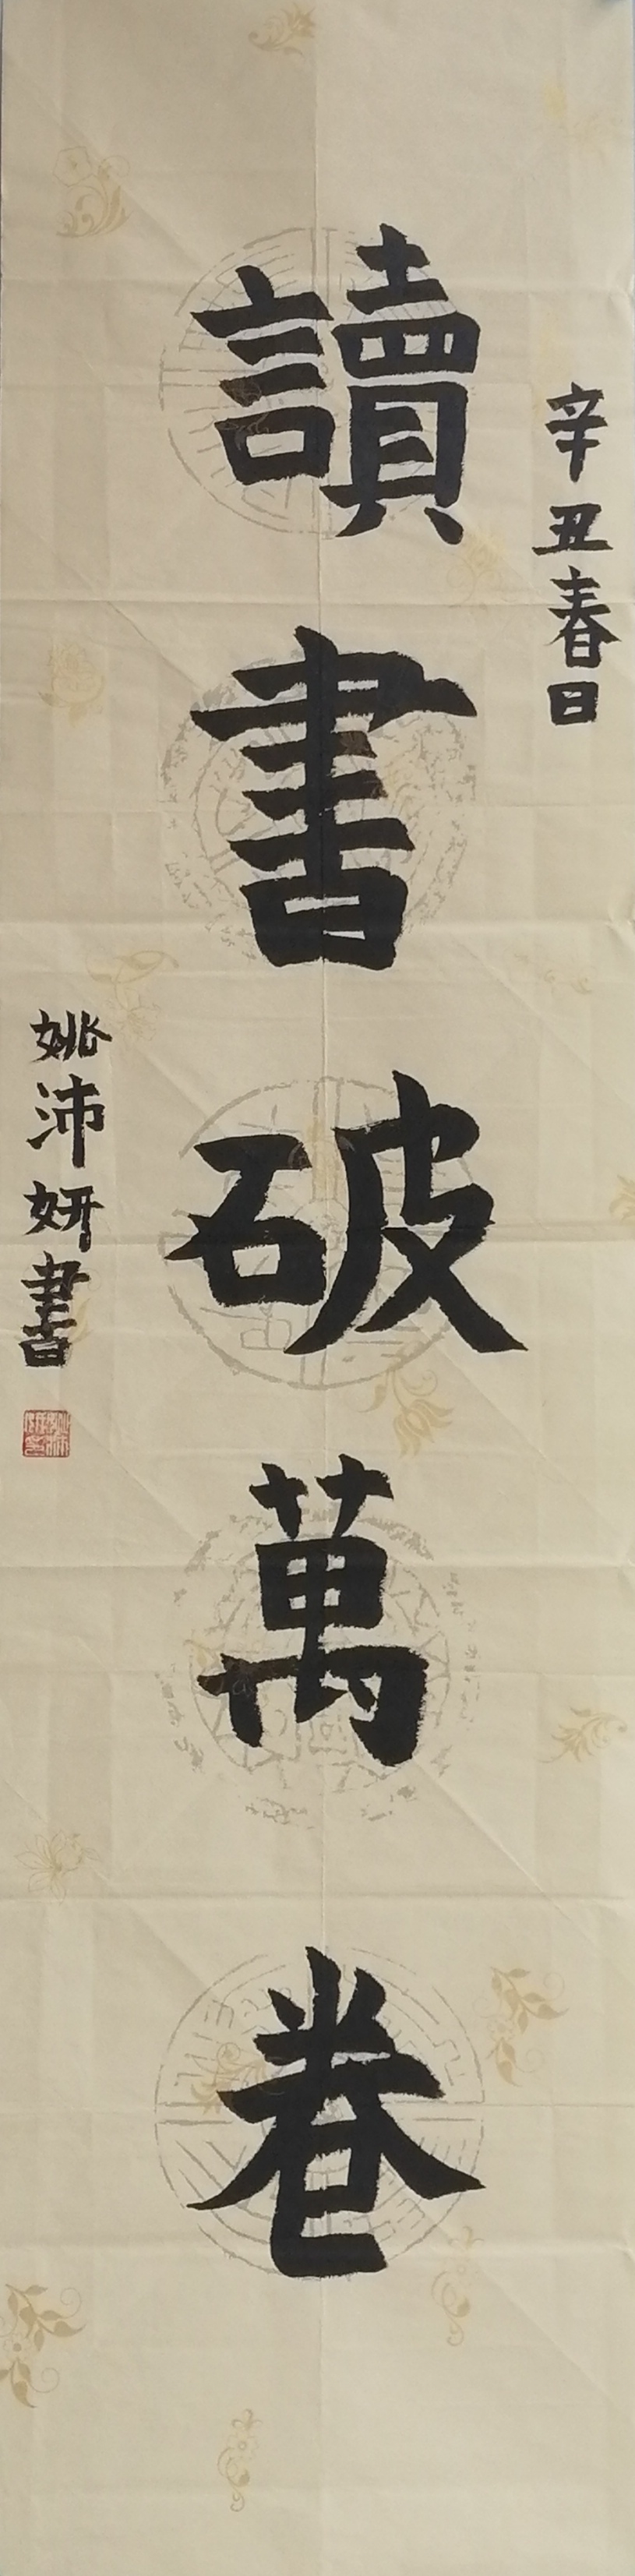 辛丑春日
讀書破萬卷
姚沛妍書